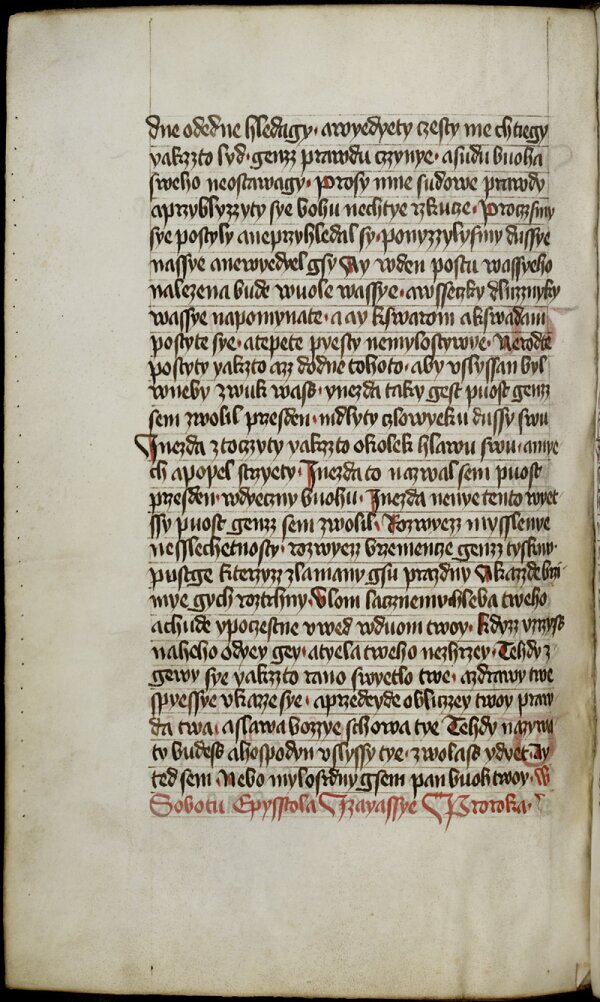 dne odedne hledagy· awyedyety czesty me chtiegy
yakzzto lyd· genzz prawdu czynye· asudu buoha
sweho neostawagy· Prosy mne sudowe prawdy
aprzyblyzzyty sye bohu nechtye rzkucze· Proczsmy
sye postyly aneprzyhledal sy· ponyzzylysmy dussye
nassye anewyedyel gsy Ay wden postu wassyeho
nalezena bude wuole wassye· awsseczky dluznyky
wassye napomynate· a ay kswarom akswadam
postyte sye· atepete pyesty nemylostywye· Nerodte
postyty yakzto azz dodne tohoto· aby vslyssan byl
wneby zwuk wass· ynezda taky gest puost genzz
sem zwolil przesden· mdlyty czlowyeku dussy swu
Inezda ztoczyty yakzzto okolek hlawu swu· amye
ch apopel strzyety· Inezda to nazwal sem puost
przesden· wdyeczny buohu· Inezda nenye tento wyet
ssy puost genzz sem zwolil· Rozwyezz mysslenye
nesslechetnosty· rozwyezz brzemencze genzz tysknu·
pustge kterzyzz zlamany gsu prazdny Akazzde brzi
mye gych roztrhny· Vlom lacznemu chleba tweho
achude ypoczestne vwed wduom twoy· kdyzz vzrzyss
naheho odyey gey· atyela tweho nezhrzey· Tehdy z
gewy sye yakzzto rano swyetlo twe· azdrawy twe
spyessye vkazze sye· aprzedeyde obliczzey twoy praw
da twa· aslawa bozzye schowa tye Tehdy nazywa
ty budess ahospodyn vslyssy tye· zwolass ydyet Ay
ted sem· Nebo mylosrdny gsem pan buoh twoy· W
Sobotu Epysstola Yzayassye Proroka·